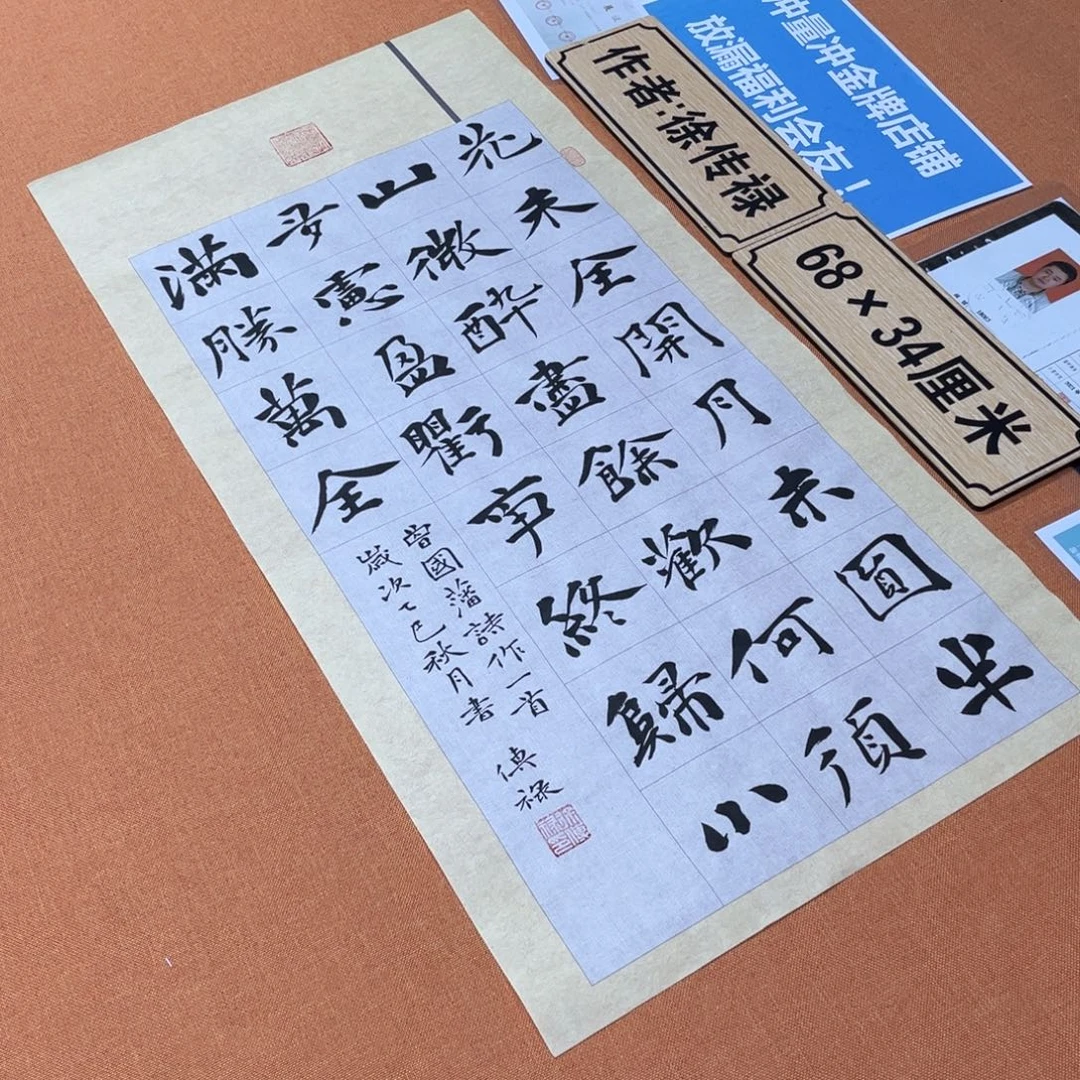 花未全開月未圓半
山微醉盡餘歡何須
多慮盈虧事終歸小
滿勝萬全
曾國藩詩作一首
歲次乙巳秋月書 傳祿
作者:徐传禄
68×34厘米
冲量冲金牌店铺
放漏福利会友！